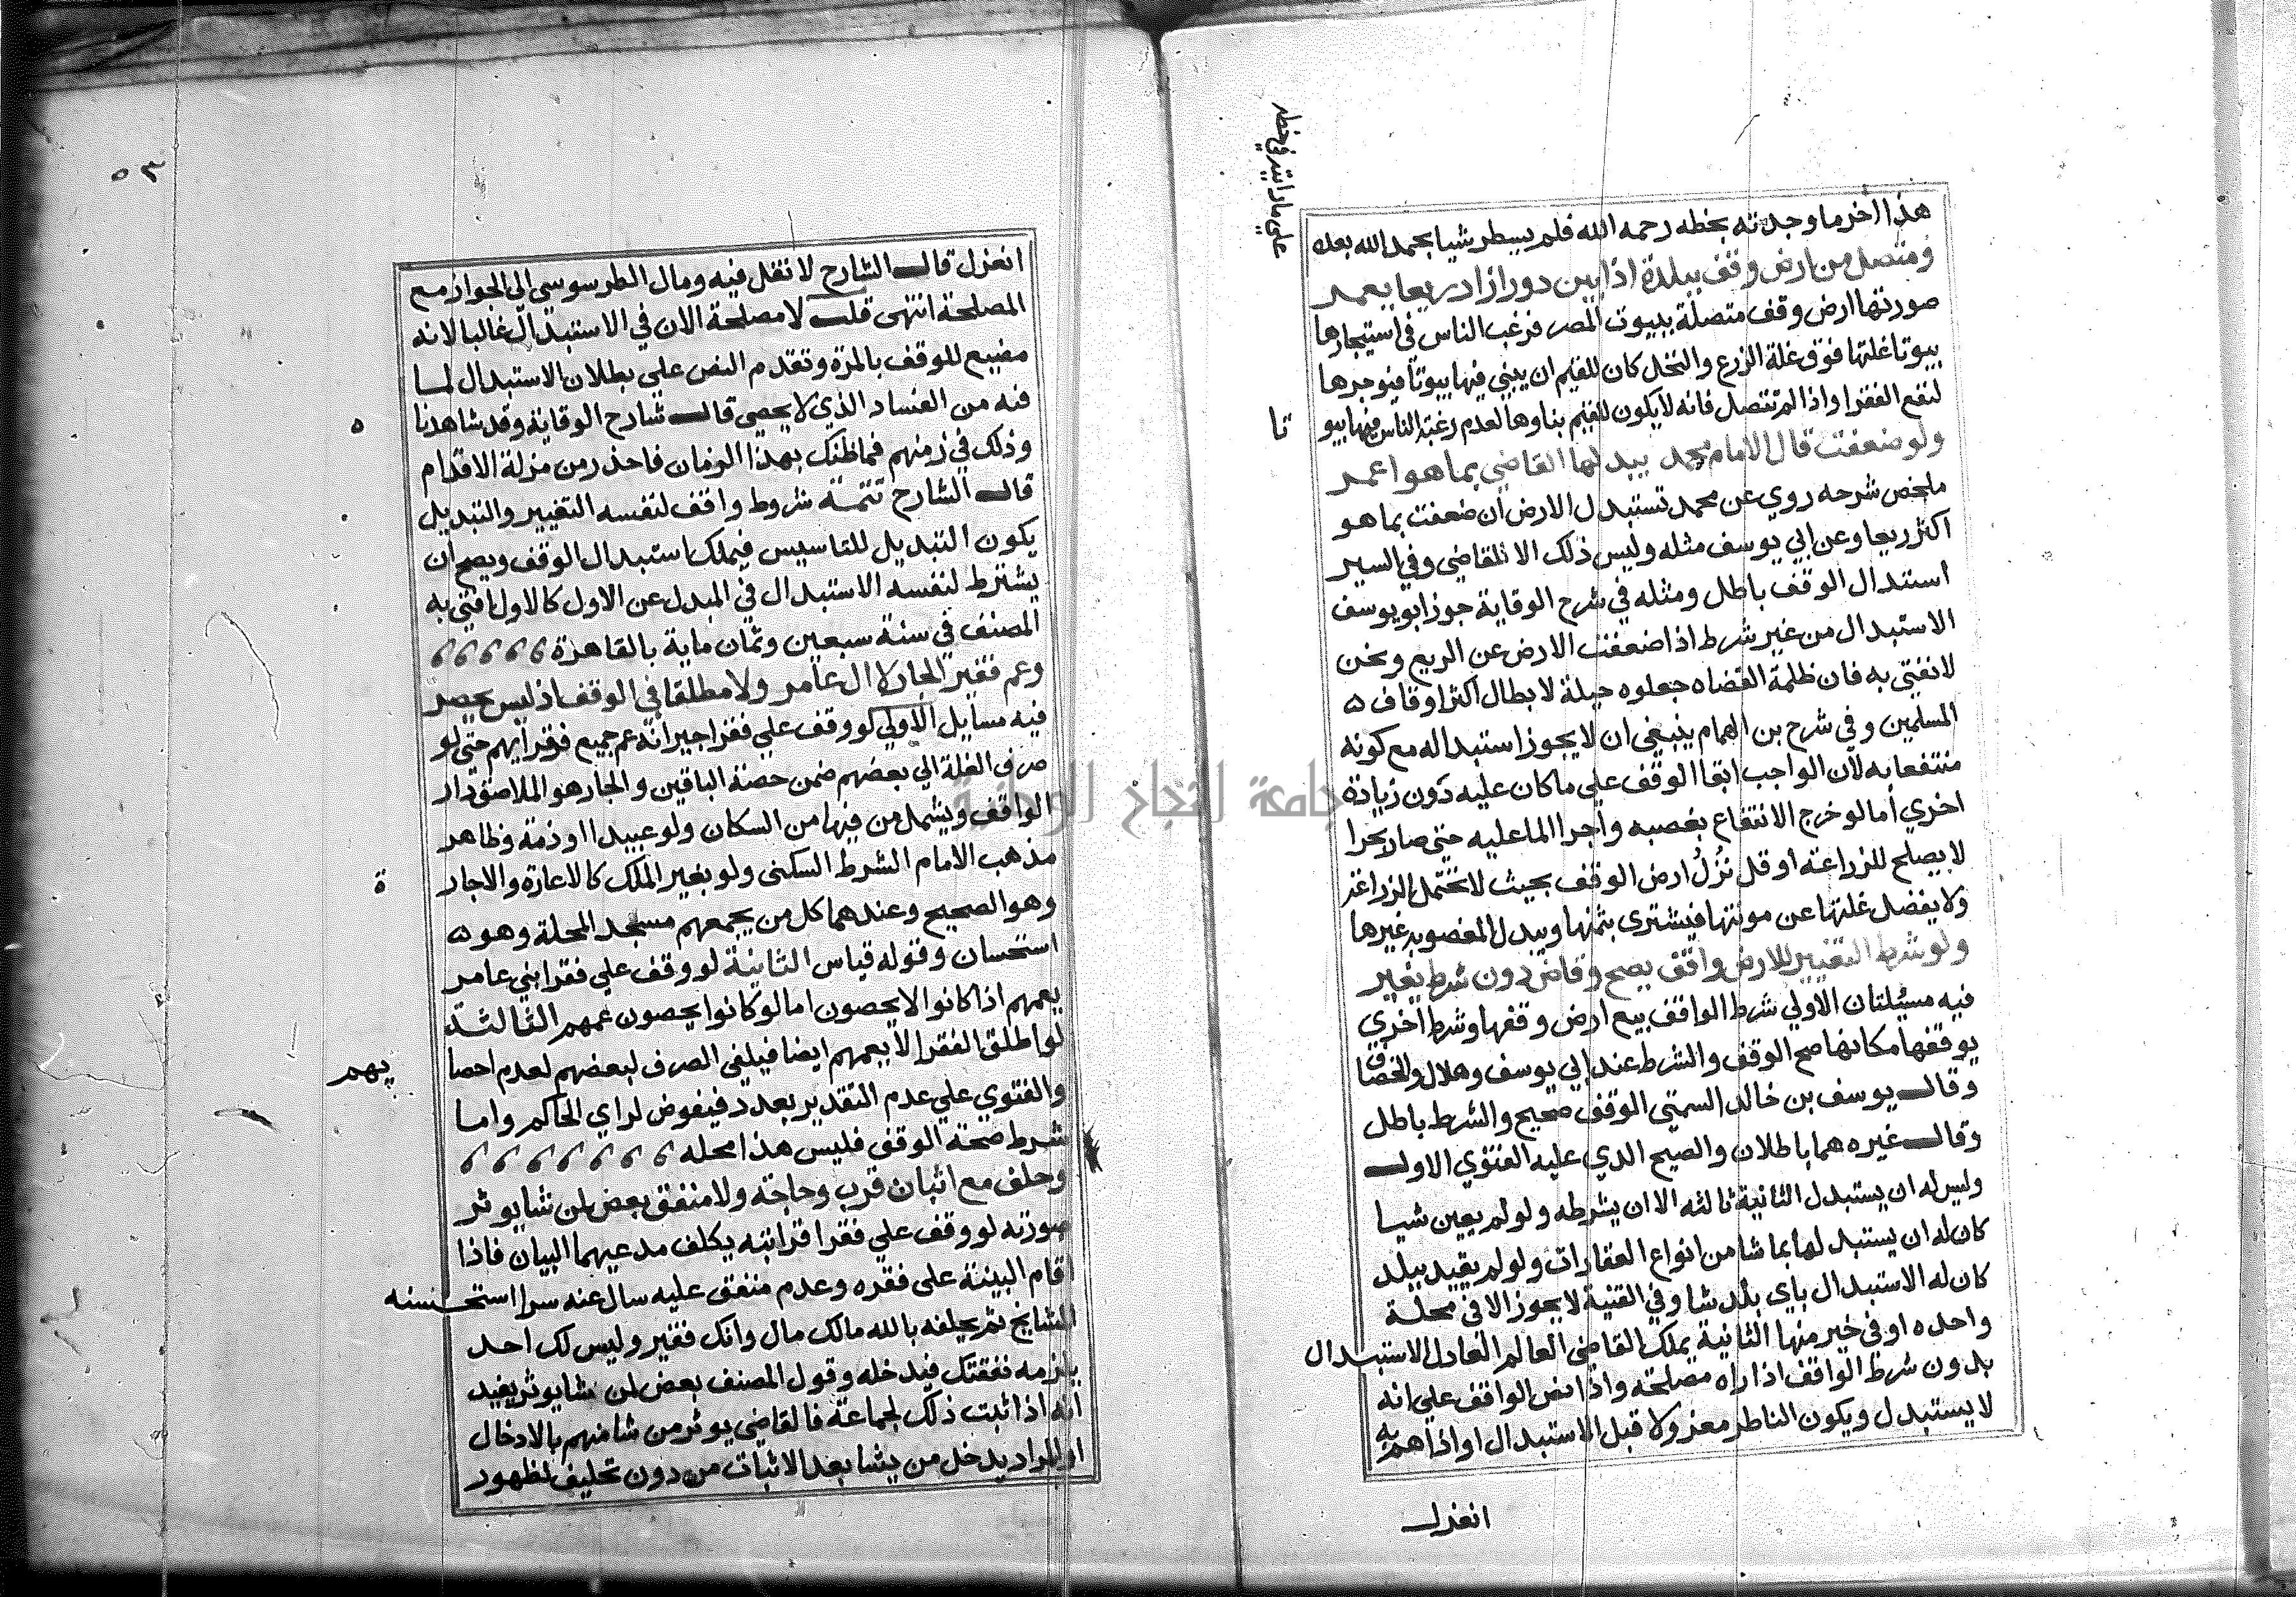 هذا اخر ما وجدته بخطه رحمه الله فلم يسطر شيا بحمد الله بعده
علي ما رايته في خطه
ومتصل من ارض وقف ببلدة اذا بين دور ازاد ريعا يعمد
صورتها ارض وقف متصلة ببيوت المصر فرغب الناس في استيجارها
بيوتا غلتها فوق غلة الزرع والنخل كان للقيم ان يبني فيها بيوتا فيوجرها
لنفع الفقرا واذا لم تتصل فانه لا يكون للقيم بناوها لعدم رغبة الناس فيها بيو
تا
ولو ضعفت قال الامام محمد يبدلها القاضي بما هو اعمر
ملخص شرحه روي عن محمد تستبدل الارض ان ضعفت بما هو
اكثر ريعا وعن ابي يوسف مثله وليس ذلك الا للقاضي وفي السير
استبدال الوقف باطل ومثله في شرح الوقاية جوز ابو يوسف
الاستبدال من غير شرط اذا ضعفت الارض عن الريع ونحن
لا نفتي به فان ظلمة القضاه جعلوه حيلة لا بطال اكثر اوقاف ه
المسلمين وفي شرح بن الهمام ينبغي ان لا يجوز استبداله مع كونه
منتفعا به لان الواجب ابقا الوقف علي ما كان عليه دون زيادة
اخري اما لو خرج الانتفاع بغصبه واجرا الما عليه حتي صار بحرا
لا يصلح للزراعة او قل نزل ارض الوقف بحيث لا تحتمل الزراعة
ولا يفضل غلتها عن مونتها فيشتري بثمنها وببدل المغصوبه غيرها
ولو شرط التغيير للارض واقف يصح وقاض دون شرط يغير
فيه مسئلتان الاولي شرط الواقف بيع ارض وقفها وشرط اخري
يوقفها مكانها صح الوقف والشرط عند ابي يوسف وهلال والخصاف
وقال يوسف بن خالد السمتي الوقف صحيح والشرط باطل
وقال غيره هما باطلان والصيح الدي عليه الفتوي الاول
وليس له ان يستبدل الثانية ثالثه الا ان يشرطه ولو لم يعين شيا
كان له ان يستبدلها بما شا من انواع العقارات ولو لم يقيد ببلد
كان له الاستبدال باي بلد شا وفي القنية لا يجوز الا في محلة
واحده او في خير منها الثانية يملك القاضي العالم العادل الاستبدال
بدون شرط الواقف اذا راه مصلحة واذا نص الواقف علي انه
لا يستبدل ويكون الناظر معزولا قبل الاستبدال او اذا هم به
انعزل
٥٣
انعزل قال الشارح لا نقل فيه ومال الطرسوسي الي الجواز مع
المصلحة انتهي قلت لا مصلحة الان في الاستبدال غالبا لانه
مضيع للوقف بالمرة وتقدم النص علي بطلان الاستبدال لما
فيه من الفساد الذي لا يحصي قال شارح الوقاية وقد شاهدنا
ه
وذلك في زمنهم فما ظنك بهذا الزمان فاحذر من مزلة الاقدام
قال الشارح تتمة شروط واقف لنفسه التغيير والتبديل
يكون التبديل للتاسيس فيملك استبدال الوقف ويصح ان
يشترط لنفسه الاستبدال في المبدل عن الاول كالاول افتي به
المصنف في سنة سبعين وثمان ماية بالقاهرة
وعم فقير الجار لا ال عامر ولا مطلقا في الوقف اذ ليس يحصر
فيه مسايل الاولي لو وقف علي فقرا جيرانه عم جميع فقرايهم حتي لو
صرف الغلة الي بعضهم ضمن حصة الباقين والجار هو الملاصق دار
الواقف ويشمل من فيها من السكان ولو عبيدا او ذمة وظاهر
مذهب الامام الشرط السكني ولو بغير الملك كالاعارة والاجار
ة
وهو الصحيح وعندهما كل من يجمعهم مسجد المحلة وهو ه
استحسان وقوله قياس الثانية لو وقف علي فقرا بني عامر
يعمهم اذا كانوا لا يحصون اما لو كانوا يحصون عمهم الثالثة
لو اطلق الفقرا لا يعمهم ايضا فيلغي الصرف لبعضهم لعدم احصا
يهم
والفتوي علي عدم التقدير بعدد فيفوض لراي الحاكم واما
شرط صحة الوقف فليس هذا محله
وحلف مع اثبات قرب وحاجة ولا منفق بعض لمن شا يوثر
صورته لو وقف علي فقرا قرابته يكلف مدعيهما البيان فاذا
اقام البينة علي فقره وعدم منفق عليه سال عنه سرا استحسنه
المشايخ ثم يحلفه بالله مالك مال وانك فقير وليس لك احد
يلزمه نفقتك فيدخله وقول المصنف بعض لمن شا يوثر يفيد
انه اذا ثبت ذلك لجماعة فالقاضي يوثر من شا منهم بالادخال
او المراد يدخل من يشا بعد الاثبات من دون تحليف لظهور
جامعة النجاح الوطنية